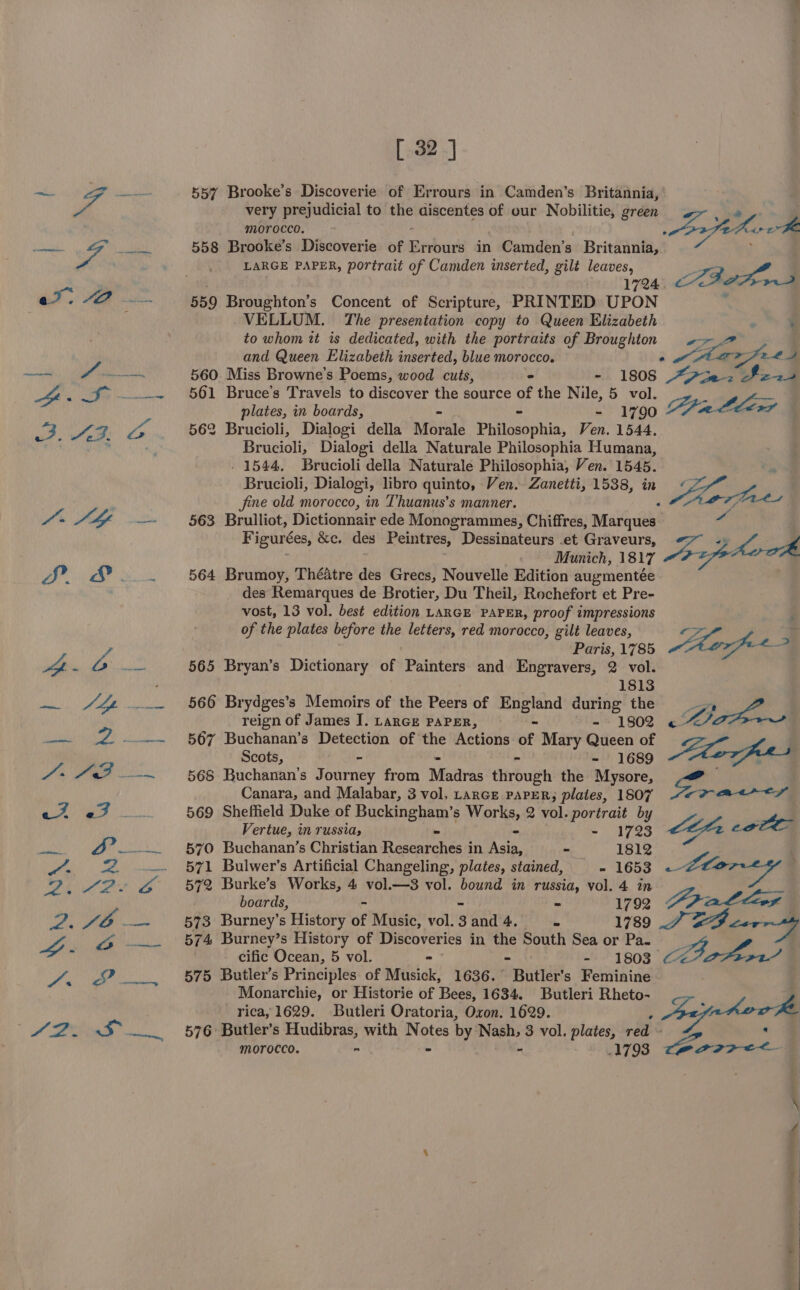 [ 32 ]
557 Brooke's Discoverie of Errours in Camden's Britannia,
very prejudicial to the discentes of our Nobilitie, green
morocco.
— 7 —
558 Brooke's Discoverie of Errours in Camden's Britannia,
LARGE PAPER, portrait of Camden inserted, gilt leaves,
1724
— 7 — Bohn
559 Broughton's Concent of Scripture, PRINTED UPON
VELLUM. The presentation copy to Queen Elizabeth
to whom it is dedicated, with the portraits of Broughton
and Queen Elizabeth inserted, blue morocco.
5. 10 — Thorpe
560 Miss Browne's Poems, wood cuts, - - 1808
— 1 —
561 Bruce's Travels to discover the source of the Nile, 5 vol.
plates, in boards, - - - 1790
4. 5 —
562 Brucioli, Dialogi della Morale Philosophia, Ven. 1544.
Brucioli, Dialogi della Naturale Philosophia Humana,
1544. Brucioli della Naturale Philosophia, Ven. 1545.
Brucioli, Dialogi, libro quinto, Ven. Zanetti, 1538, in
fine old morocco, in Thuanus's manner.
3. 13. 6 Thorpe
563 Brulliot, Dictionnair ede Monogrammes, Chiffres, Marques
Figurées, &c. des Peintres, Dessinateurs et Graveurs,
Munich, 1817
1. 14 —
564 Brumoy, Théâtre des Grecs, Nouvelle Edition augmentée
des Remarques de Brotier, Du Theil, Rochefort et Pre-
vost, 13 vol. best edition LARGE PAPER, proof impressions
of the plates before the letters, red morocco, gilt leaves,
Paris, 1785
8. 8 — Thorpe
565 Bryan's Dictionary of Painters and Engravers, 2 vol.
1813
4. 6 —
566 Brydges's Memoirs of the Peers of England during the
reign of James I. LARGE PAPER, - - 1802
— 14 — Bohn
567 Buchanan's Detection of the Actions of Mary Queen of
Scots, - - - - 1689
— 2 — Thorpe
568 Buchanan's Journey from Madras through the Mysore,
Canara, and Malabar, 3 vol. LARGE PAPER, plates, 1807
1. 13 —
569 Sheffield Duke of Buckingham's Works, 2 vol. portrait by
Vertue, in russia, - - - 1723
3. 3 —
570 Buchanan's Christian Researches in Asia, - 1812
— 8 —
571 Bulwer's Artificial Changeling, plates, stained, - 1653
1. 2 —
572 Burke's Works, 4 vol.—3 vol. bound in russia, vol. 4 in
boards, - - - 1792
2. 12. 6
573 Burney's History of Music, vol. 3 and 4. - 1789
2. 16 —
574 Burney's History of Discoveries in the South Sea or Pa-
cific Ocean, 5 vol. - - - 1803
4. 6 — Bohn
575 Butler's Principles of Musick, 1636. Butler's Feminine
Monarchie, or Historie of Bees, 1634. Butleri Rheto-
rica, 1629. Butleri Oratoria, Oxon. 1629.
1. 8 —
576 Butler's Hudibras, with Notes by Nash, 3 vol. plates, red
morocco. - - - 1793
12. 5 —